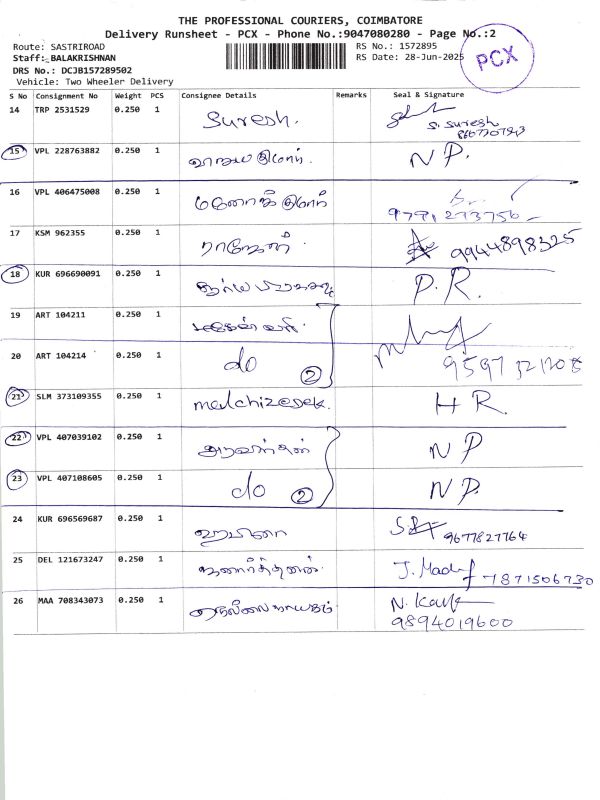 THE PROFESSIONAL COURIERS, COIMBATORE
Delivery Runsheet - PCX - Phone No.:9047080280 - Page No.:2
Route: SASTRIROAD
RS No.: 1572895
Staff: BALAKRISHNAN
RS Date: 28-Jun-2025
PCX
DRS No.: DCJB157289502
Vehicle: Two Wheeler Delivery
S No Consignment No Weight PCS Consignee Details Remarks Seal & Signature
14 TRP 2531529 0.250 1 Suresh. S. Suresh
15 VPL 228763882 0.250 1 N P.
16 VPL 406475008 0.250 1 மனோஜ் குமார்
17 KSM 962355 0.250 1 ராஜேஷ் 9944898325
18 KUR 696690091 0.250 1 P. R.
19 ART 104211 0.250 1 மகேஸ்வரி
20 ART 104214 0.250 1 do 2
21 SLM 373109355 0.250 1 melchizedek. H R.
22 VPL 407039102 0.250 1 அரவிந்தன் N P
23 VPL 407108605 0.250 1 do 2 N P.
24 KUR 696569687 0.250 1 9677827764
25 DEL 121673247 0.250 1 ஜனார்த்தனன் 7871506730
26 MAA 708343073 0.250 1 நெல்லை நாயகம்
9894019600